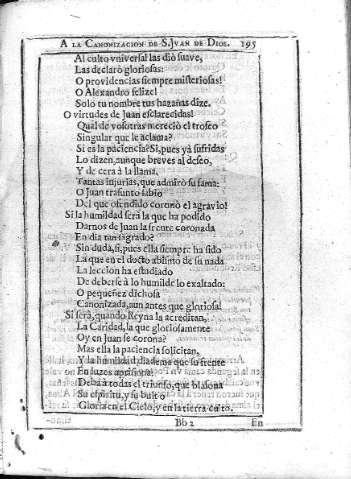 A LA CANONIZACION DE S. JVAN DE DIOS. 195
Al culto vniversal las diò suave,
Las declarò gloriosas:
O providencias siempre misteriosas!
O Alexandro felize!
Solo tu nombre tus hazañas dize.
O virtudes de Juan esclarecidas!
Qual de vosotras mereciò el trofeo
Singular que le aclama?
Si es la paciencia? Si, pues yà sufridas
Lo dizen, aunque breves al deseo,
Y de cera à la llama,
Tantas injurias, que admirò su fama:
O Juan trasunto sabio
Del que ofendido coronò el agravio!
Si la humildad serà la que ha podido
Darnos de Juan la frente coronada
En dia tan sagrado?
Sin duda, si, pues ella siempre ha sido
La que en el docto abismo de su nada
La leccion ha estudiado
De deberse à lo humilde lo exaltado:
O pequeñez dichosa
Canonizada, aun antes que gloriosa!
Si serà, quando Reyna la acreditan,
La Caridad, la que gloriosamente
Oy en Juan se corona?
Mas ella la paciencia solicitan,
Y la humildad, diadema que su frente
En luzes
Deba à todas el triunfo, que blasona
Su espiritu, y su bulto
Gloria en el Cielo, y en la tierra culto.
Bb 2 En